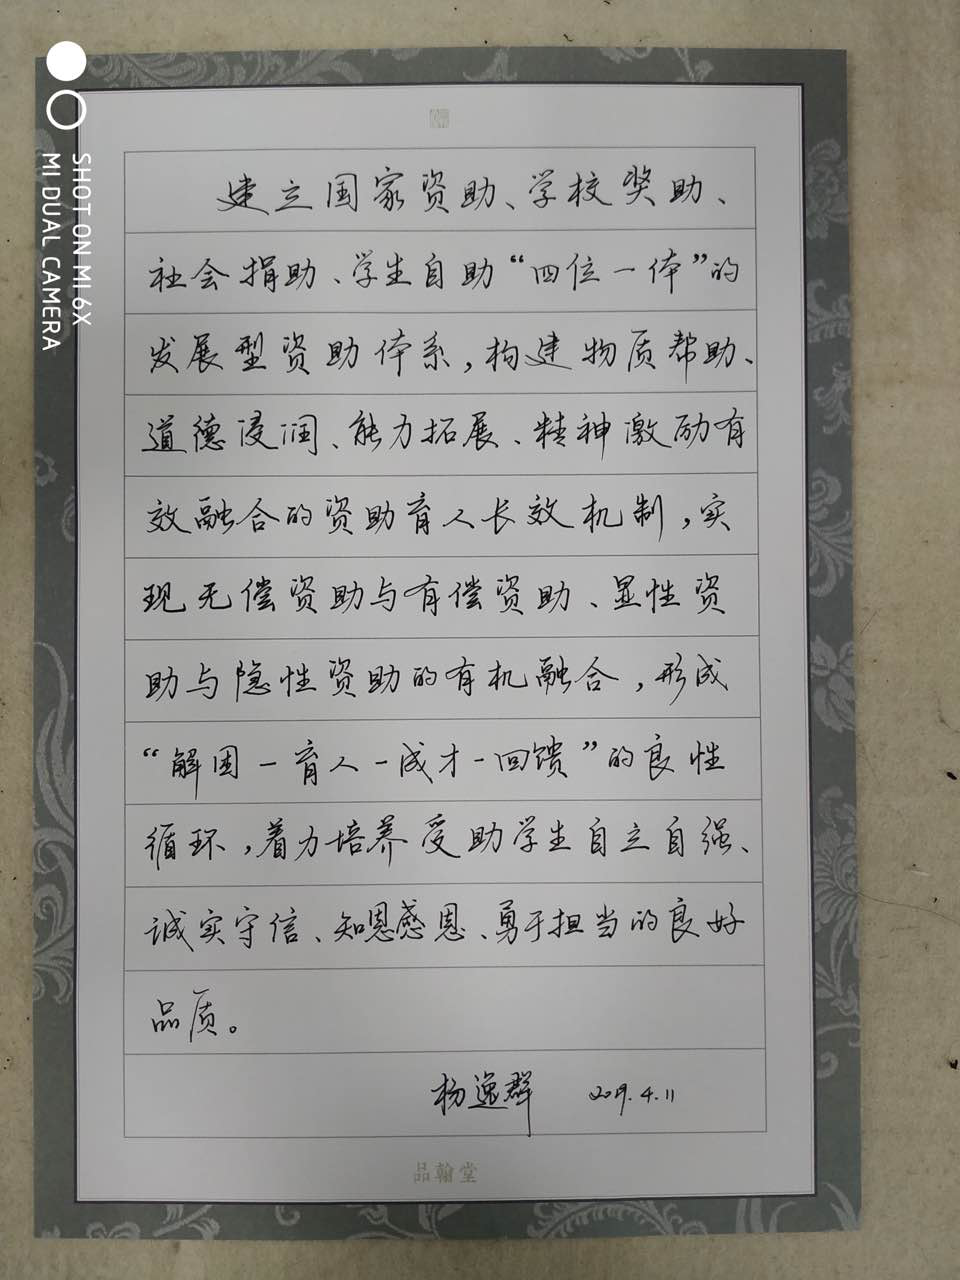 建立国家资助、学校奖助、
社会捐助、学生自助“四位一体”的
发展型资助体系，构建物质帮助、
道德浸润、能力拓展、精神激励有
效融合的资助育人长效机制，实
现无偿资助与有偿资助、显性资
助与隐性资助的有机融合，形成
“解困－育人－成才－回馈”的良性
循环，着力培养受助学生自立自强、
诚实守信、知恩感恩、勇于担当的良好
品质。
杨逸群 2019.4.11
品翰堂
SHOT ON MI 6X
MI DUAL CAMERA